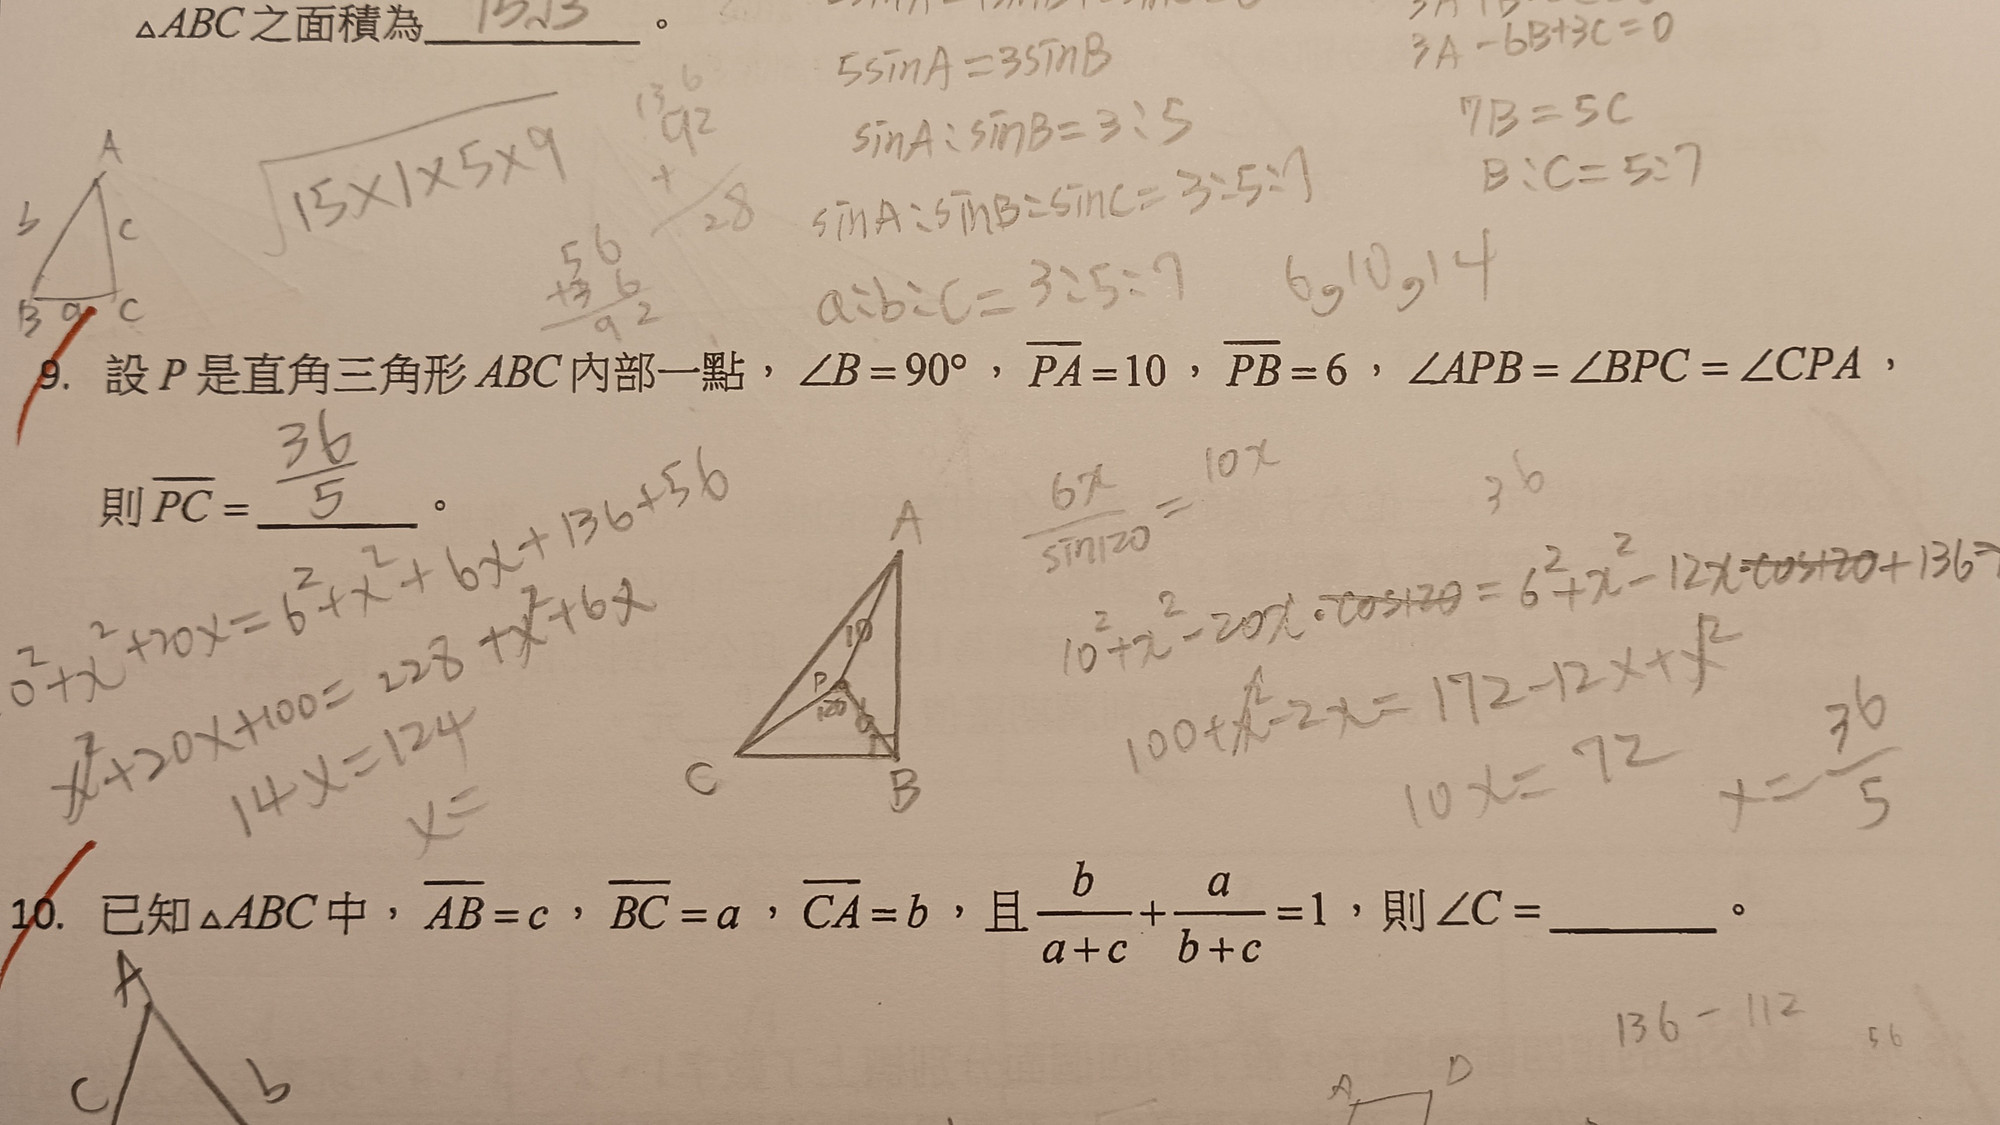 △ABC之面積為 15√3 。
5sinA=3sinB
3A-6B+3C=0
sinA:sinB=3:5
7B=5C
B:C=5:7
sinA:sinB:sinC=3:5:7
a:b:c=3:5:7
6,10,14
√15×1×5×9
136
92
+
28
56
+36
92
A
b
c
B a C
9. 設 P 是直角三角形 ABC 內部一點，∠B=90°，PA=10，PB=6，∠APB=∠BPC=∠CPA，
則 PC= 36/5 。
0²+x²+20x=6²+x²+6x+136+56
x²+20x+100=228+x²+6x
14x=124
x=
A
10
P
120
6
C
B
6x/sin120=10x
36
10²+x²-20x·cos120=6²+x²-12x·cos120+136
100+x²-2x=172-12x+x²
10x=72
x=36/5
10. 已知△ABC中，AB=c，BC=a，CA=b，且 b/(a+c)+a/(b+c)=1，則∠C=______。
A
C
b
136-112
56
A
D